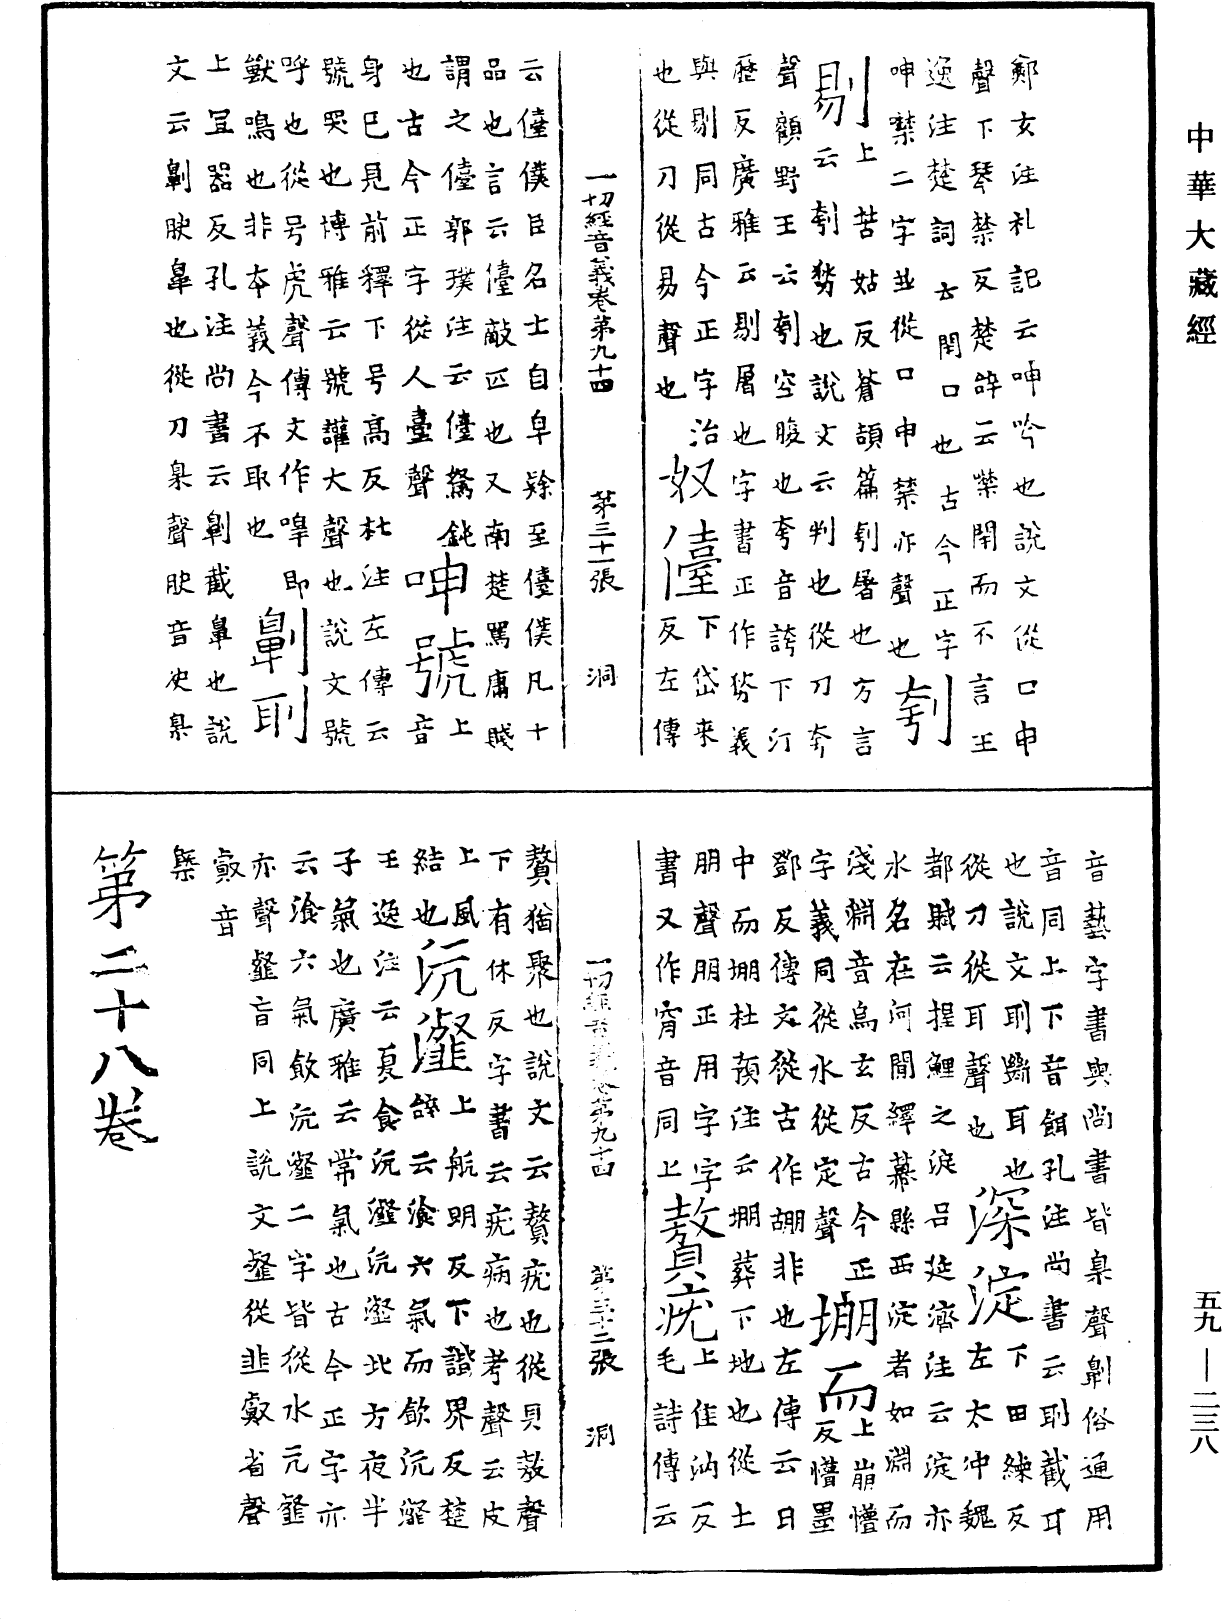 中華大藏經
鄭玄注礼記云呻吟也說文從口申
聲下琴禁反楚辞云噤閉而不言王
逸注楚詞云閉口也古今正字
呻噤二字並從口申禁亦聲也刳
剔上苦姑反蒼頡篇刳屠也方言
云刳剺也說文云判也從刀夸
聲顧野王云刳空腹也夸音誇下汀
歷反廣雅云剔屠也字書正作𠜾義
與剔同古今正字治
也從刀從易聲也奴儓下岱來反左傳
一切經音義卷第九十四 第三十一張 洞
云儓僕臣名士自皁隸至儓僕凡十
品也言云儓敵匹也又南楚罵庸賤
謂之儓郭璞注云儓駑鈍
也古今正字從人臺聲呻號上音
身巳見前釋下号高反杜注左傳云
號哭也博雅云號讙大聲也說文號
呼也從号虎聲傳文作嘷即
獸鳴也非本義今不取也劓刵
上冝器反孔注尚書云劓截鼻也說
文云劓䀗鼻也從刀臬聲䀗音史臬
音藝字書與尚書皆臬聲劓俗通用
音同上下音餌孔注尚書云刵截耳
也說文刵斷耳也
從刀從耳聲也深淀下田練反左太冲魏
都賦云掍鯉之淀吕延濟注云淀亦
水名在河閒繹幕縣西淀者如淵而
淺淵音烏玄反古今正
字義同從水從定聲堋而上崩懵反懵墨
鄧反傳文從古作𰋀非也左傳云日
中而堋杜預注云堋葬下地也從土
朋聲朋正用字字
書又作窉音同上贅疣上隹汭反毛詩傳云
一切經音義卷第九十四 第三十二張 洞
贅猶聚也說文云贅疣也從貝敖聲
下有休反字書云疣病也考聲云皮
上風
結也沆瀣上航朗反下諧界反楚辞云湌六氣而飲沆瀣
王逸注云夏食沆瀣沆瀣北方夜半
子氣也廣雅云常氣也古今正字亦
云湌六氣飲沆瀣二字皆從水亢韰
亦聲韰音同上說文韰從韭㕡省聲
㕡音
槩
第二十八卷
五九—二三八